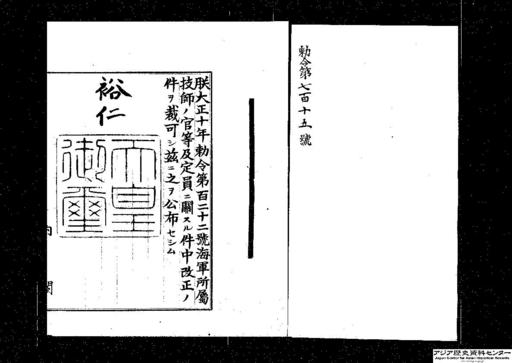 勅令第七百十五號
朕大正十年勅令第百二十二號海軍所屬
技師ノ官等及定員ニ關スル件中改正ノ
件ヲ裁可シ茲ニ之ヲ公布セシム
裕仁
天皇御璽
内閣
アジア歴史資料センター
Japan Center for Asian Historical Records